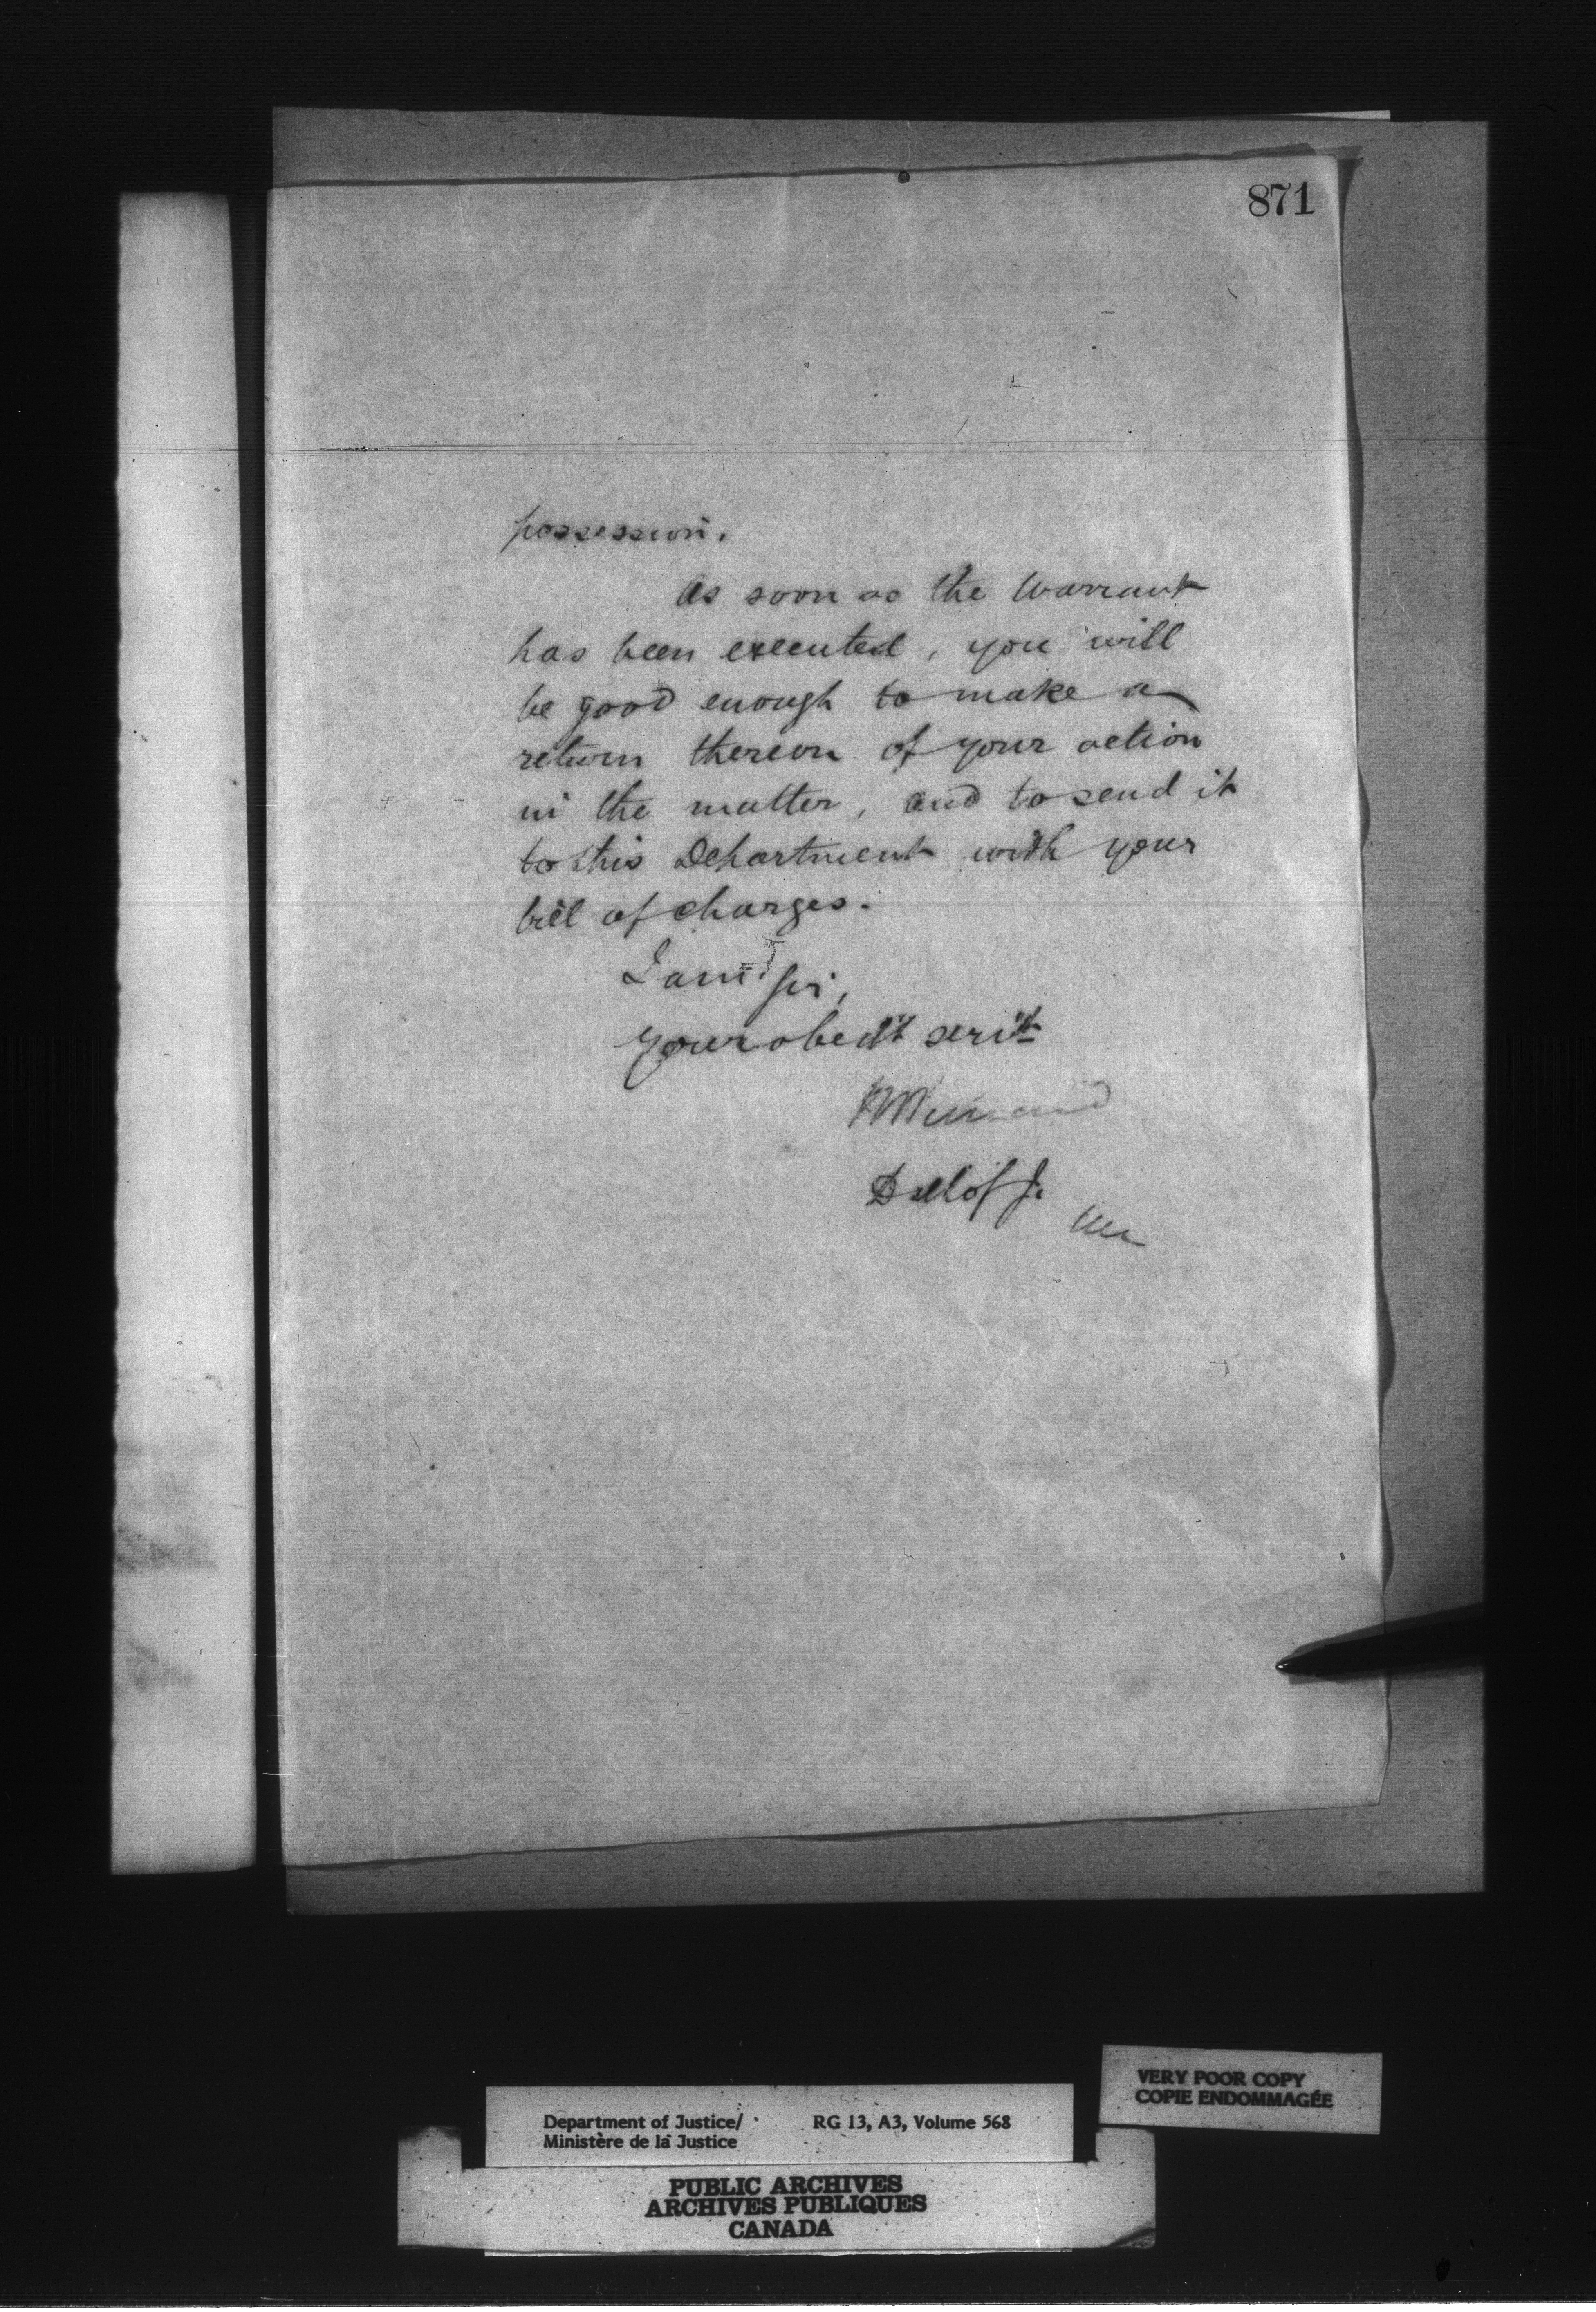 871
possession.
As soon as the Warrant
has been executed, you will
be good enough to make a
return thereon of your action
in the matter, and to send it
to this Department with your
bill of charges.
I am Sir,
Your obedt servt
D M of J.
VERY POOR COPY
COPIE ENDOMMAGÉE
Department of Justice/ RG 13, A3, Volume 568
Ministère de la Justice
PUBLIC ARCHIVES
ARCHIVES PUBLIQUES
CANADA